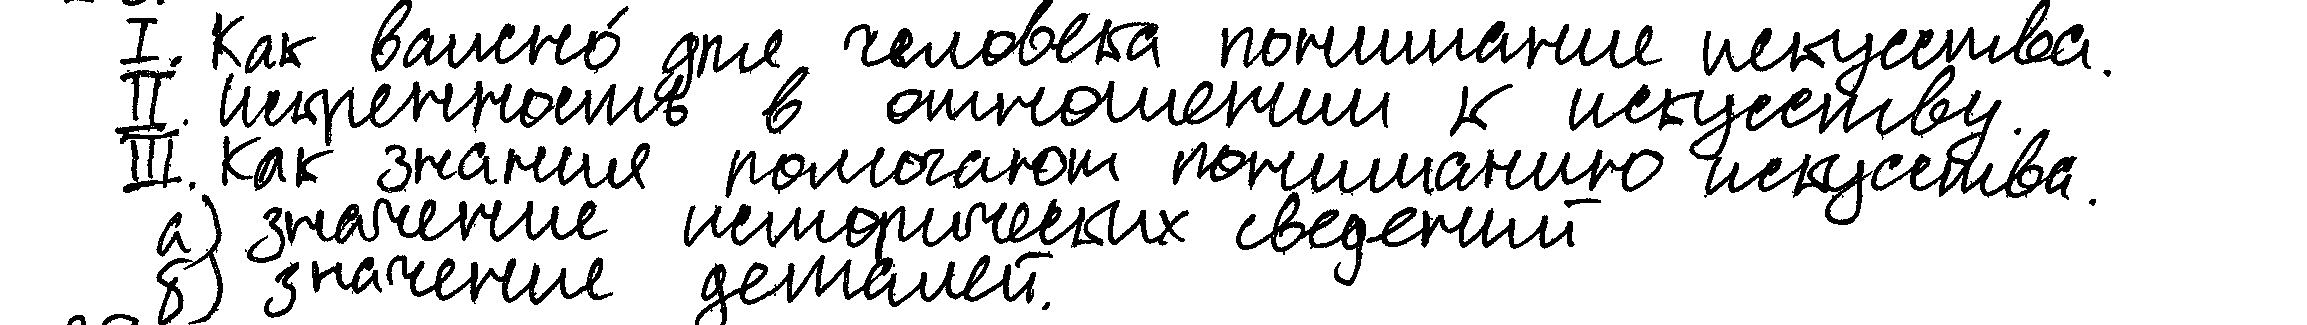 I. Как важно́ для человека понимание искусства.
II. Искренность в отношении к искусству.
III. Как знания помогают пониманию искусства.
а) значение исторических сведений
б) значение деталей.